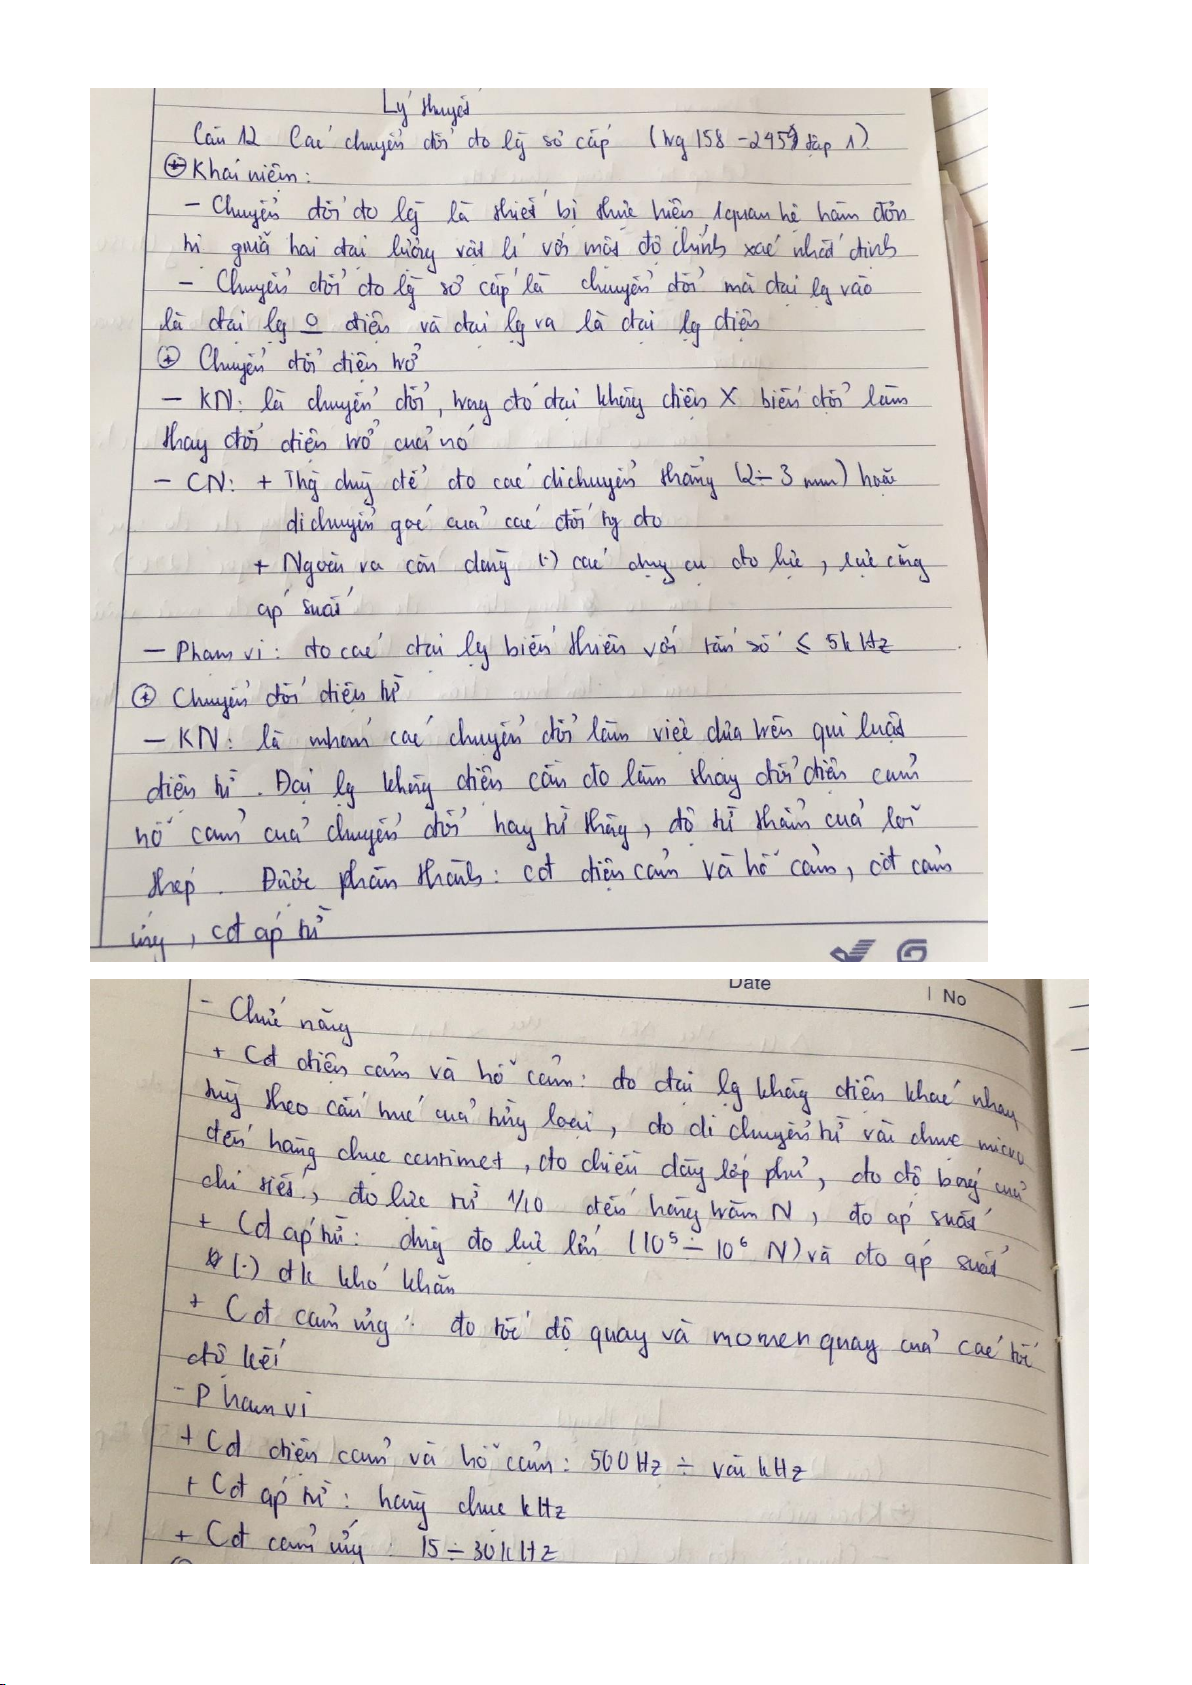 Lý thuyết
Câu 12 Các chuyển đổi đo lg sơ cấp (trg 158 - 245 tập 1)
⊕ Khái niệm:
- Chuyển đổi đo lg là thiết bị thực hiện 1 quan hệ hàm đơn
trị giữa hai đại lượng vật lí với một độ chính xác nhất định
- Chuyển đổi đo lg sơ cấp là chuyển đổi mà đại lg vào
là đại lg o điện và đại lg ra là đại lg điện
⊕ Chuyển đổi điện trở
- KN: là chuyển đổi, trong đó đại không điện X biến đổi làm
thay đổi điện trở của nó
- CN: + Thg dùng để đo các di chuyển thẳng (2÷3 mm) hoặc
di chuyển góc của các đối tg đo
+ Ngoài ra còn dùng (·) các dụng cụ đo lực, lực căng
áp suất
- Phạm vi: đo các đại lg biến thiên với tần số ≤ 5kHz
⊕ Chuyển đổi điện từ
- KN: là nhóm các chuyển đổi làm việc dựa trên qui luật
điện từ. Đại lg không điện cần đo làm thay đổi điện cảm
hỗ cảm của chuyển đổi hay từ thông, độ từ thẩm của lõi
thép. Được phân thành: cđ điện cảm và hỗ cảm, cđ cảm
ứng, cđ áp từ
Date
No
- Chức năng
+ Cđ điện cảm và hỗ cảm: đo đại lg không điện khác nhau
tùy theo cấu trúc của từng loại, đo di chuyển từ vài chục micro
đến hàng chục centimet, đo chiều dày lớp phủ, đo độ bóng của
chi tiết, đo lực từ 1/10 đến hàng trăm N, đo áp suất
+ Cđ áp từ: dùng đo lực lớn (10⁵ ÷ 10⁶ N) và đo áp suất
(·) đk khó khăn
+ Cđ cảm ứng: đo tốc độ quay và momen quay của các tốc
độ kế
- Phạm vi
+ Cđ điện cảm và hỗ cảm: 500Hz ÷ vài kHz
+ Cđ áp từ: hàng chục kHz
+ Cđ cảm ứng: 15 ÷ 30kHz